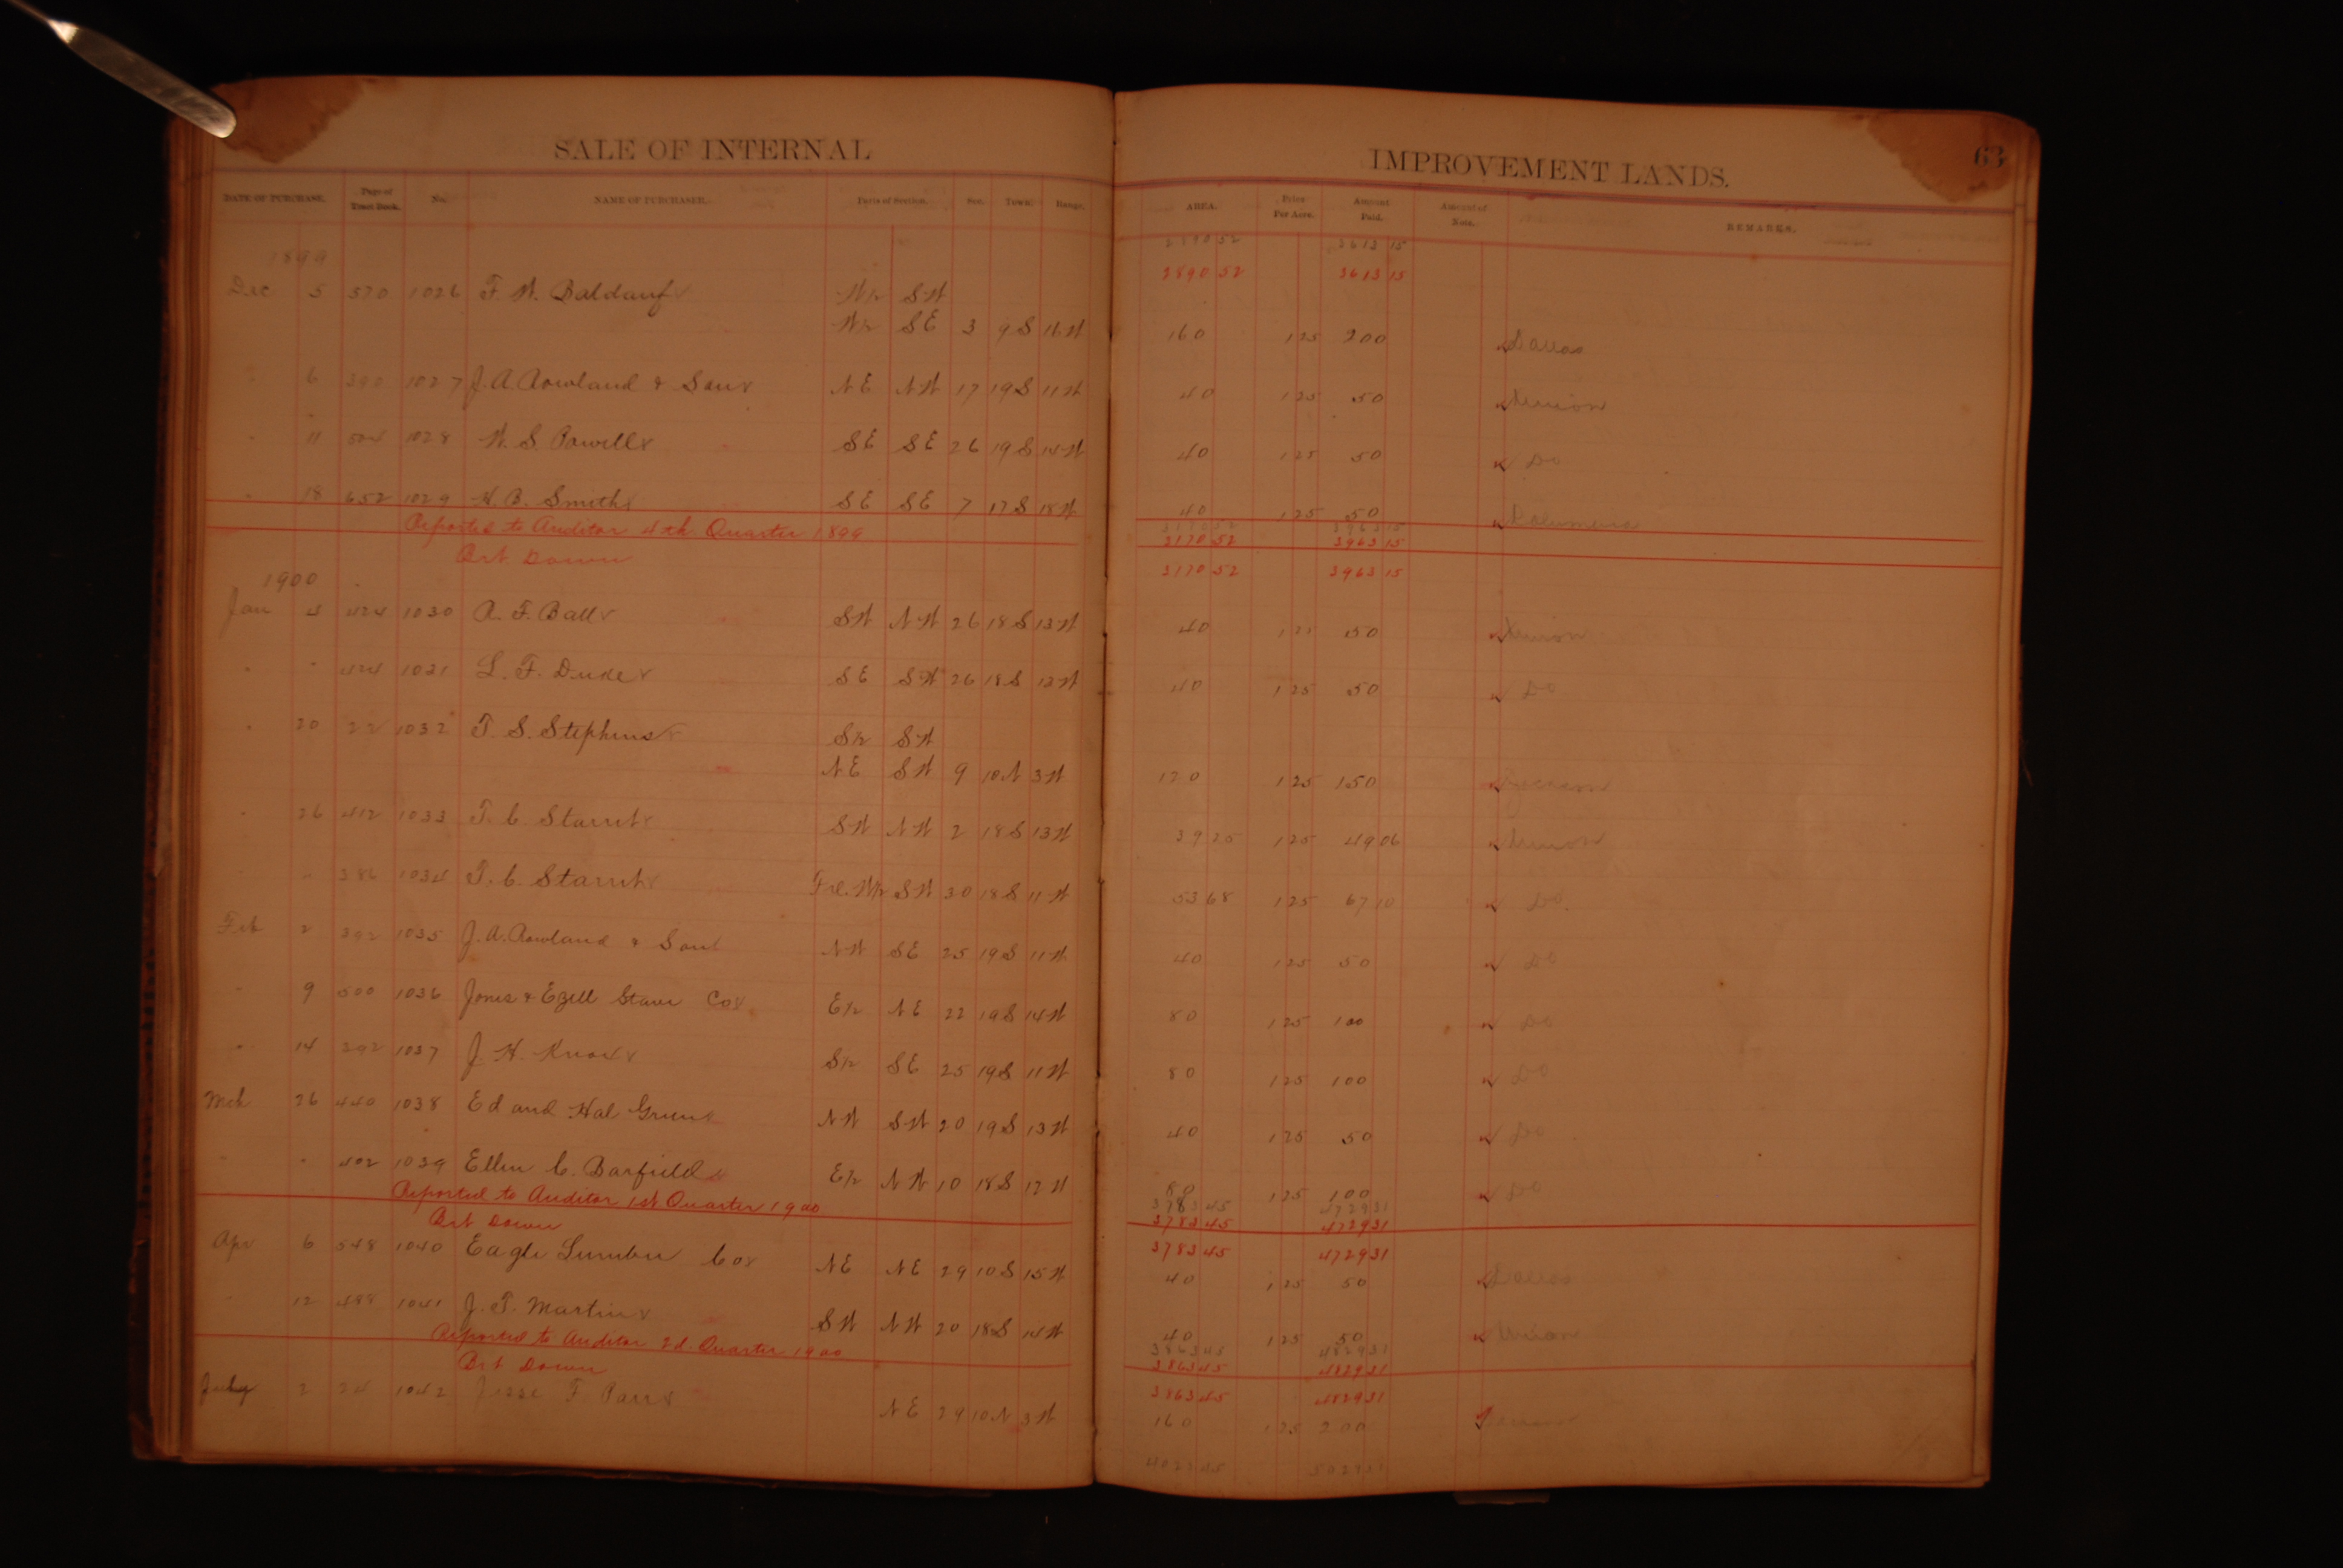 SALE OF INTERNAL IMPROVEMENT LANDS. 63
DATE OF PURCHASE. Page of Tract Book. No. NAME OF PURCHASER. Parts of Section. Sec. Town. Range. AREA. Price Per Acre. Amount Paid. Amount of Note. REMARKS.
2890 52 3613 15
1899 2890 52 3613 15
Dec 5 570 1026 F. W. Baldauf W½ SW
W½ SE 3 9S 16W 160 125 200 Dallas
" 6 390 1027 J. A. Rowland & Son NE NW 17 19S 11W 40 125 50 Union
" 11 504 1028 W. S. Powell SE SE 26 19S 14W 40 125 50 Do
" 18 652 1029 H. B. Smith SE SE 7 17S 18W 40 125 50 Columbia
3170 52 3963 15
Reported to Auditor 4th Quarter 1899 3170 52 3963 15
Brt Down 3170 52 3963 15
1900
Jan 4 424 1030 A. F. Ball SW NW 26 18S 13W 40 125 50 Union
" " 424 1031 L. F. Duke SE SW 26 18S 13W 40 125 50 Do
" 20 22 1032 T. S. Stephens S½ SW
NE SW 9 10N 3W 120 125 150
" 26 412 1033 T. C. Starritt SW NW 2 18S 13W 39 25 125 49 06 Union
" " 386 1034 T. C. Starritt Frl. W½ SW 30 18S 11W 53 68 125 67 10 Do.
Feb 2 392 1035 J. A. Rowland & Son NW SE 25 19S 11W 40 125 50 Do
" 9 500 1036 Jones & Ezell Stave Co E½ NE 22 19S 14W 80 125 100 Do
" 14 392 1037 J. H. Knox S½ SE 25 19S 11W 80 125 100 Do
Mch 26 440 1038 Ed and Hal Green NW SW 20 19S 13W 40 125 50 Do
" " 402 1039 Ellen C. Barfield E½ NW 10 18S 12W 80 125 100 Do
3783 45 4729 31
Reported to Auditor 1st Quarter 1900 3783 45 4729 31
Brt Down 3783 45 4729 31
Apr 6 548 1040 Eagle Lumber Co NE NE 29 10S 15W 40 125 50 Dallas
" 12 488 1041 J. T. Martin SW NW 20 18S 14W 40 125 50 Union
3863 45 4829 31
Reported to Auditor 2d. Quarter 1900 3863 45 4829 31
Brt Down 3863 45 4829 31
July 2 24 1042 Jesse F. Parr NE 29 10N 3W 160 125 200
4023 45 5029 31